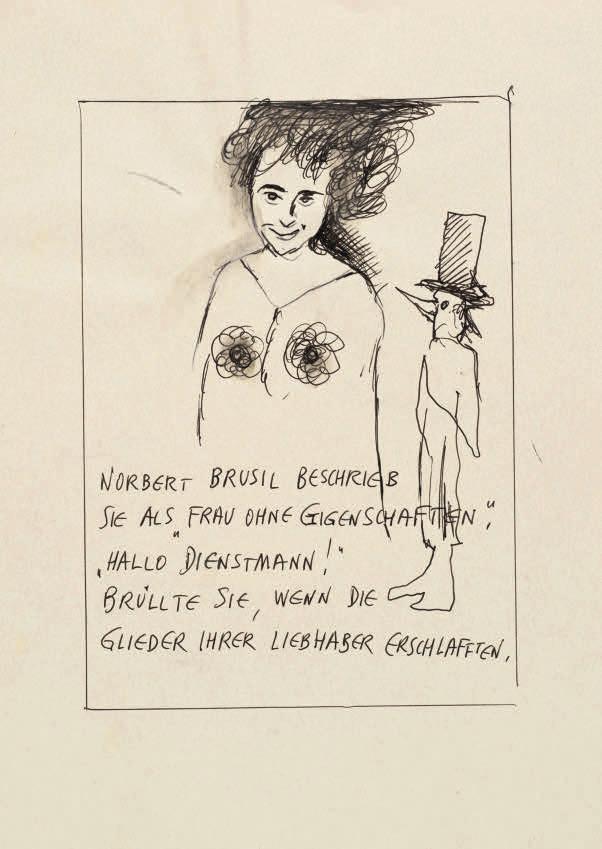 NORBERT BRUSIL BESCHRIEB
SIE ALS „FRAU OHNE GIGENSCHAFTEN“,
„HALLO DIENSTMANN!“
BRÜLLTE SIE, WENN DIE
GLIEDER IHRER LIEBHABER ERSCHLAFFTEN.